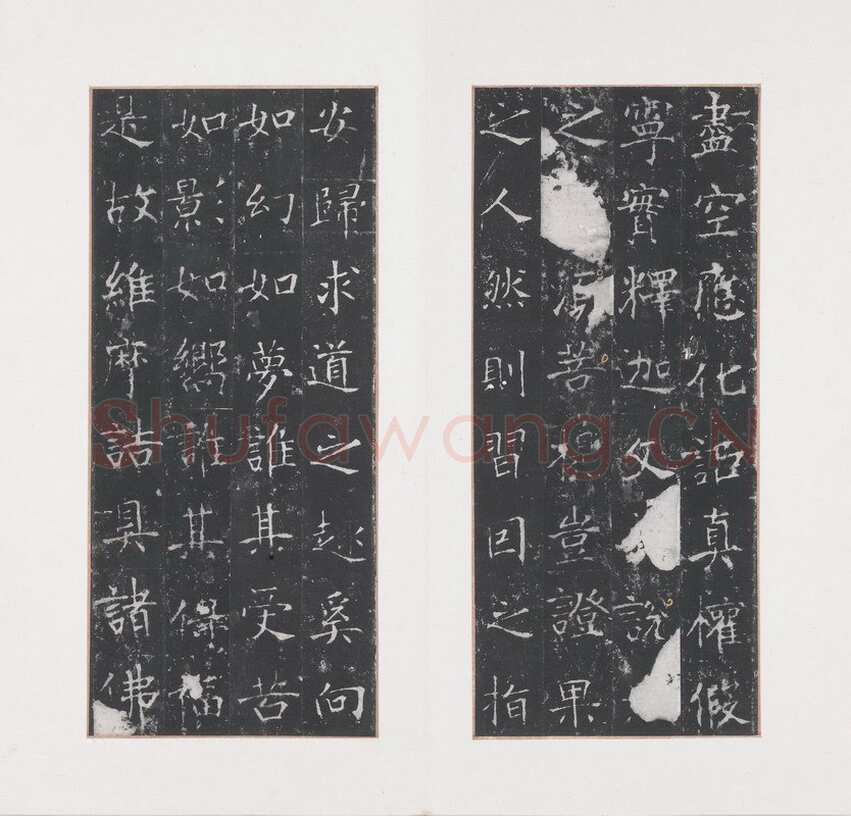 盡空應化詎真權假
寧實釋迦文說
之須菩提豈證果
之人然則習因之指
安歸求道之趣奚向
如幻如夢誰其受苦
如影如嚮誰其保福
是故維摩詰具諸佛
Shufawang.CN